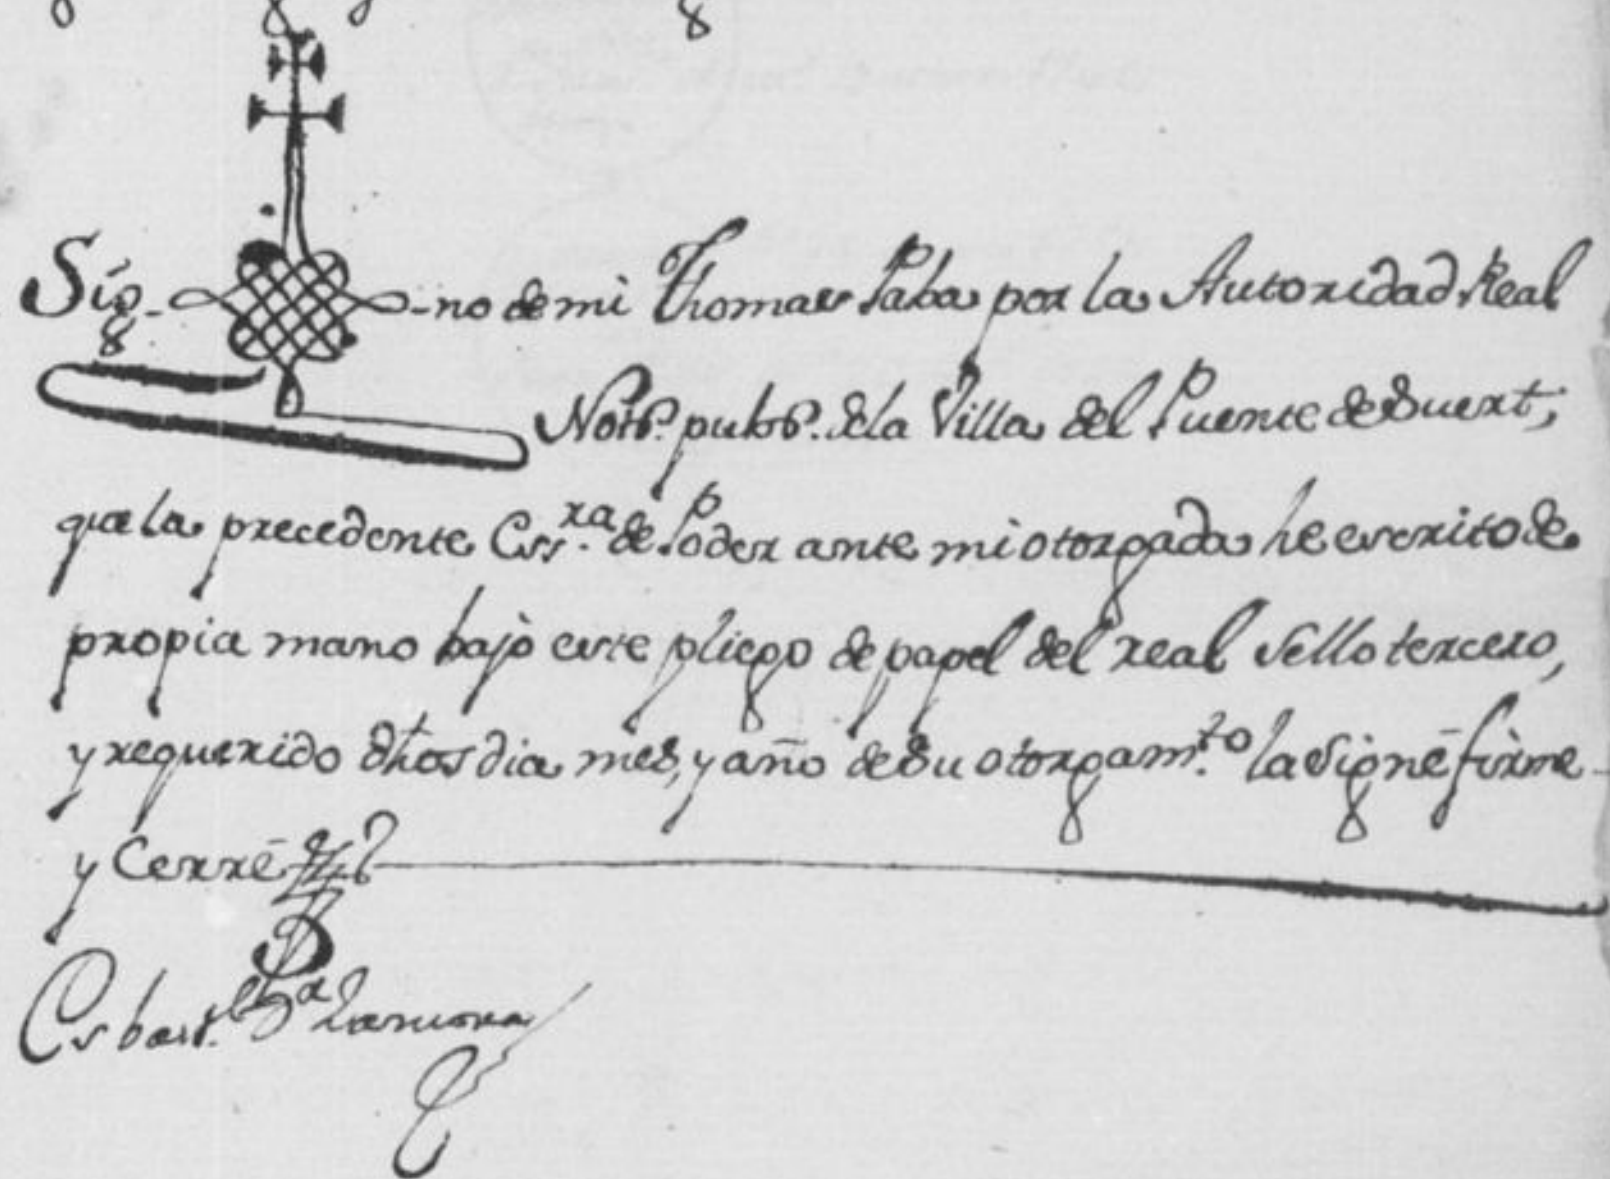 Sig-no de mi Thomas Paba por la Autoridad Real
Notº. pubº. dela Villa del Puente de Suert,
que la precedente Ess.ra de Poder ante mi otorgada he escrito de
propia mano bajo este pliego de papel del real sello tercero,
y requerido dhos dia mes, y año de su otorgam.to la signé firme
y Cerré